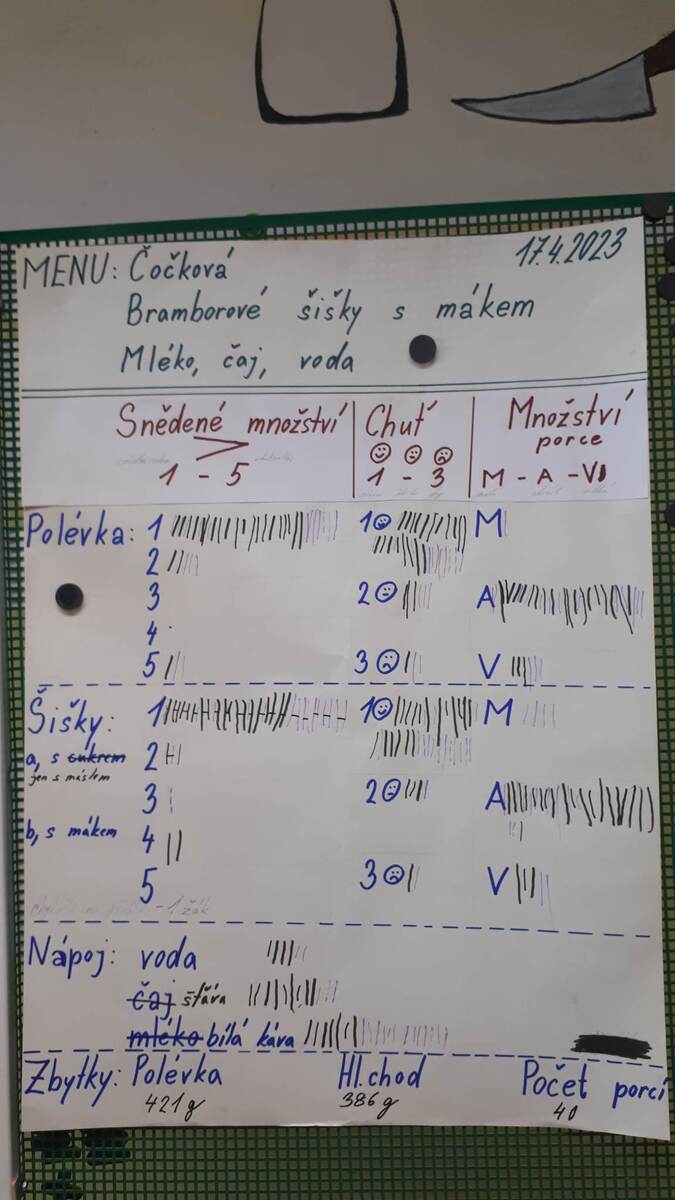 17.4.2023
MENU: Čočková
Bramborové šišky s mákem
Mléko, čaj, voda
Snědené množství Chuť Množství
porce
1 - 5 1 - 3 M - A - V
Polévka: 1 1 M
2
3 2 A
4
5 3 V
Šišky: 1 1 M
a, s cukrem 2
jen s máslem
3 2 A
b, s mákem 4
5 3 V
- 1 žák
Nápoj: voda
čaj šťáva
mléko bílá káva
Zbytky: Polévka Hl. chod Počet porcí
421 g 386 g 40